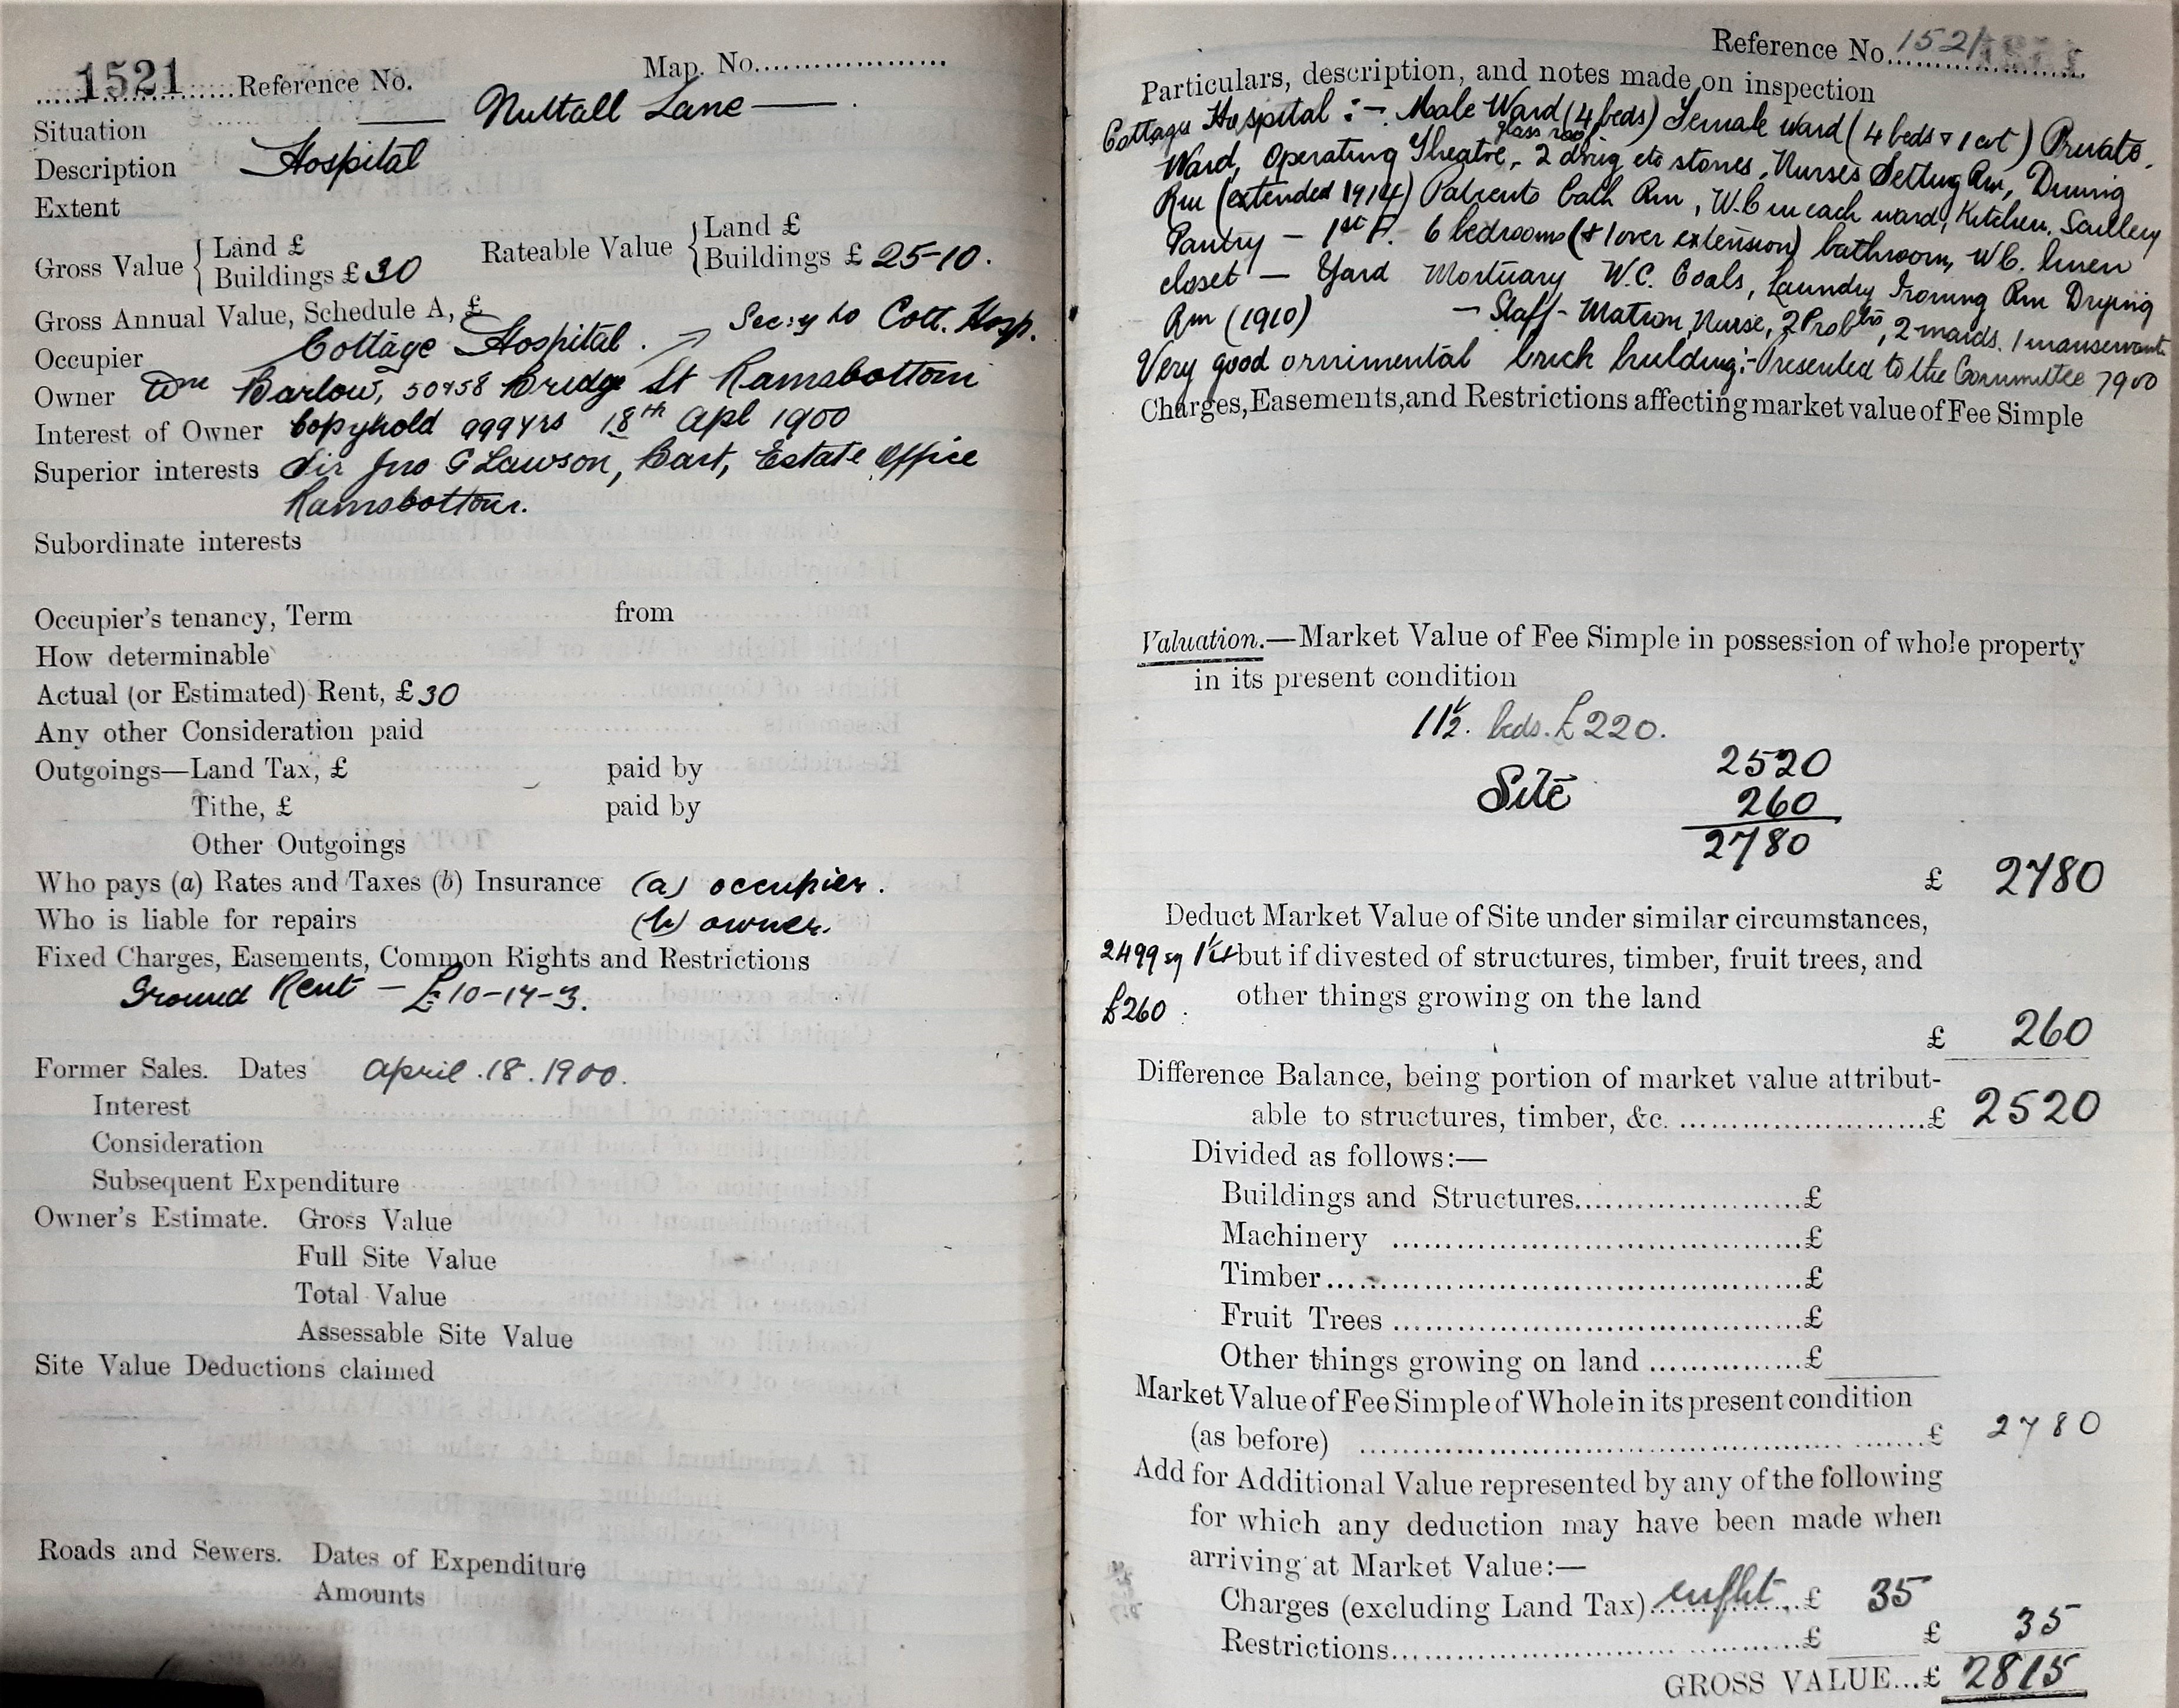 1521 Reference No. Map. No.
Situation Nuttall Lane
Description Hospital
Extent
Gross Value { Land £ Rateable Value { Land £
Buildings £ 30 Buildings £ 25-10.
Gross Annual Value, Schedule A, £
Occupier Cottage Hospital. Secry to Cott. Hosp.
Owner Wm Barlow, 50 & 58 Bridge St Ramsbottom
Interest of Owner Copyhold 999 yrs 18th Apl 1900
Superior interests Sir Jno G Lawson, Bart, Estate Office
Ramsbottom.
Subordinate interests
Occupier's tenancy, Term from
How determinable
Actual (or Estimated) Rent, £ 30
Any other Consideration paid
Outgoings—Land Tax, £ paid by
Tithe, £ paid by
Other Outgoings
Who pays (a) Rates and Taxes (b) Insurance (a) occupier.
Who is liable for repairs (b) owner.
Fixed Charges, Easements, Common Rights and Restrictions
Ground Rent — £10-14-3.
Former Sales. Dates April. 18. 1900.
Interest
Consideration
Subsequent Expenditure
Owner's Estimate. Gross Value
Full Site Value
Total Value
Assessable Site Value
Site Value Deductions claimed
Roads and Sewers. Dates of Expenditure
Amounts
Reference No. 1521
Particulars, description, and notes made on inspection
Cottage Hospital :- Male Ward (4 beds) Female ward (4 beds & 1 cot) Private
glass roof
Ward, Operating Theatre, 2 drug etc stores, Nurses Setting Rm, Dining
Rm (extended 1914) Patients bath Rm, W.C in each ward, Kitchen, Scullery
Pantry — 1st F. 6 bedrooms (& 1 over extension) bathroom, WC. linen
closet — Yard Mortuary W.C. Coals, Laundry Ironing Rm Drying
Rm (1910) — Staff - Matron, Nurse, 2 Probtrs, 2 maids. 1 manservant
Very good ornimental brick building:- Presented to the Committee 1900
Charges, Easements, and Restrictions affecting market value of Fee Simple
Valuation.—Market Value of Fee Simple in possession of whole property
in its present condition
11½. beds. £220.
2520
Site 260
2780
£ 2780
Deduct Market Value of Site under similar circumstances,
2499 sq but if divested of structures, timber, fruit trees, and
£260 other things growing on the land
£ 260
Difference Balance, being portion of market value attribut-
able to structures, timber, &c. £ 2520
Divided as follows:—
Buildings and Structures £
Machinery £
Timber £
Fruit Trees £
Other things growing on land £
Market Value of Fee Simple of Whole in its present condition
(as before) £ 2780
Add for Additional Value represented by any of the following
for which any deduction may have been made when
arriving at Market Value:—
Charges (excluding Land Tax) £ 35
Restrictions £ £ 35
GROSS VALUE...£ 2815